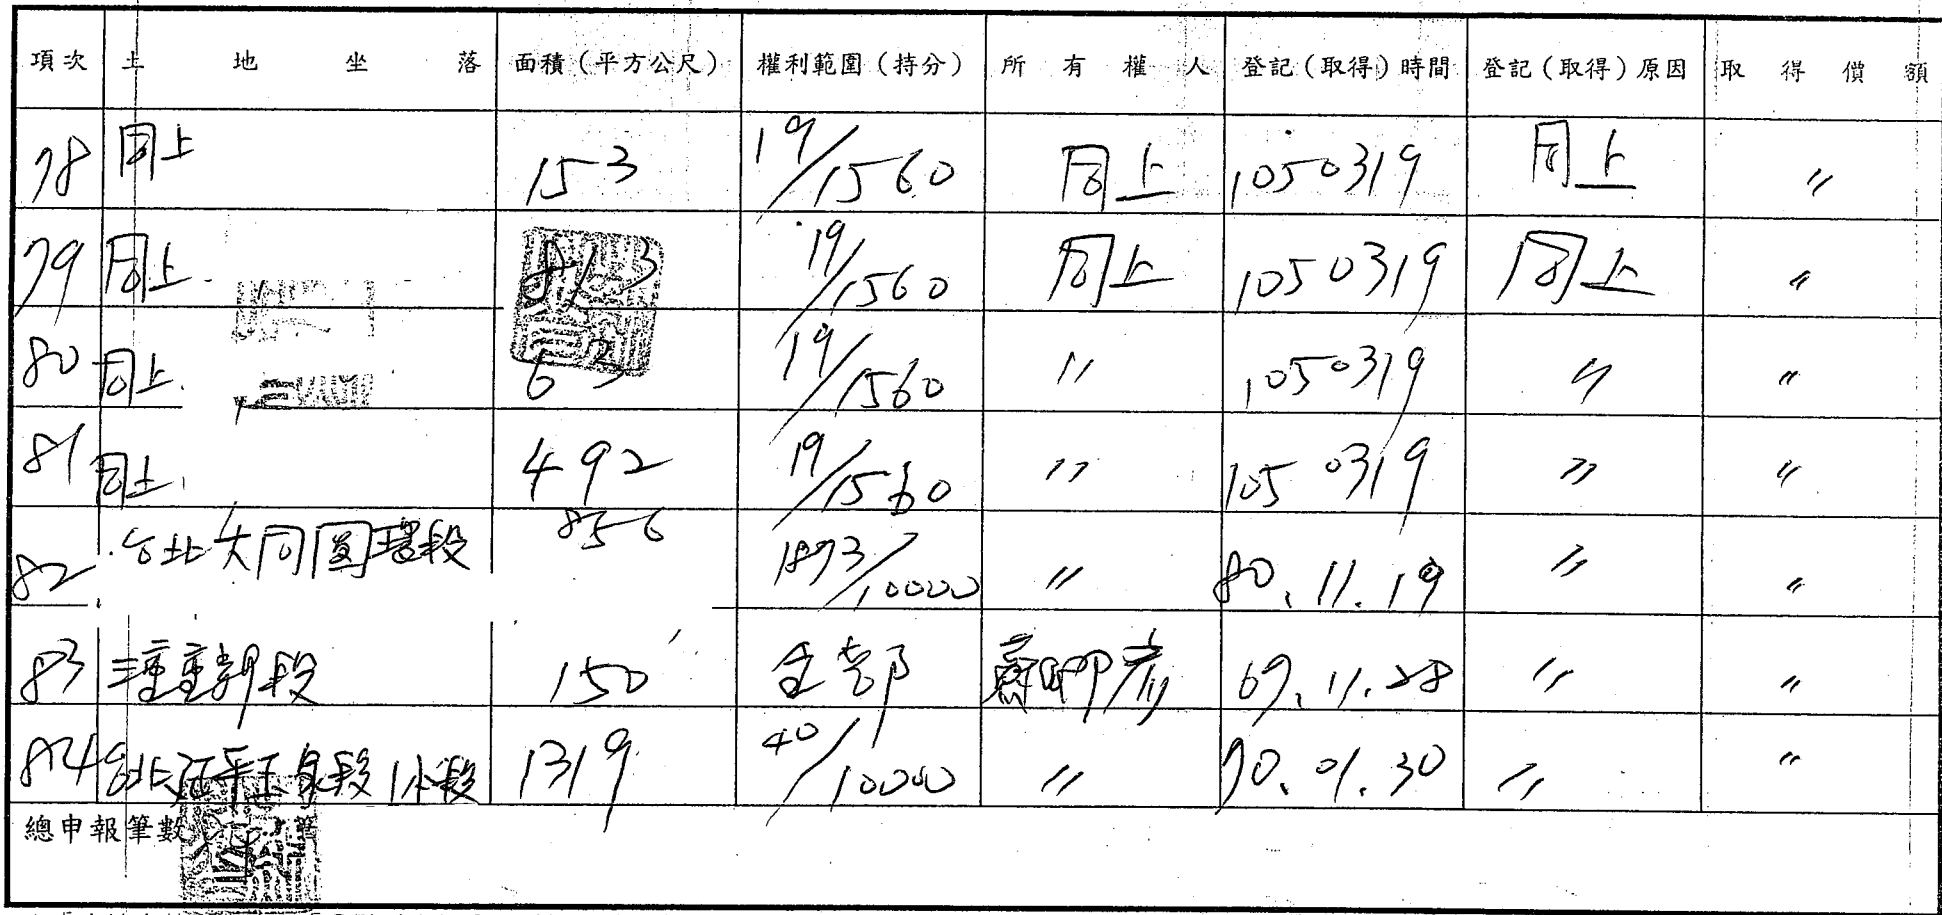 項次 土地坐落 面積（平方公尺） 權利範圍（持分） 所有權人 登記（取得）時間 登記（取得）原因 取得價額
78 同上 153 19/1560 同上 1050319 同上 〃
79 同上 19/1560 同上 1050319 同上 〃
80 同上 19/1560 〃 1050319 〃 〃
81 同上 492 19/1560 〃 1050319 〃 〃
82 台北大同圓環段 856 1873/10000 〃 80.11.19 〃 〃
83 三重重新段 150 全部 69.11.28 〃 〃
84 台北延平玉泉段1小段 1319 40/10000 〃 90.01.30 〃 〃
總申報筆數